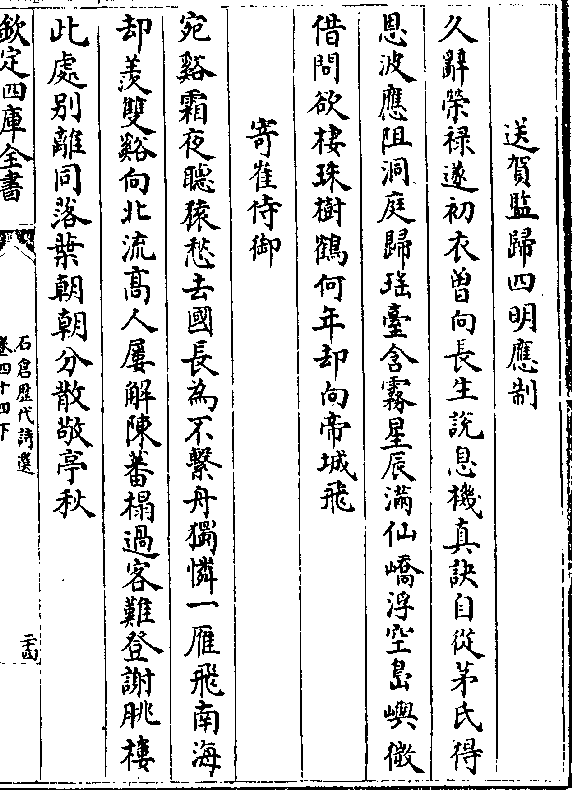 送賀監歸四明應制
久辭榮禄遂初衣曽向長生說息機真訣自從茅氏得
恩波應阻洞庭歸瑶臺含霧星辰滿仙嶠浮空島嶼微
借問欲棲珠樹鶴何年却向帝城飛
寄崔侍御
宛谿霜夜聴猿愁去國長為不繫舟獨憐一雁飛南海
却羡雙谿向北流髙人屢解陳蕃榻過客難登謝朓樓
此處别離同落葉朝朝分散敬亭秋
欽定四庫全書
石倉歴代詩選
卷四十四下
二十四